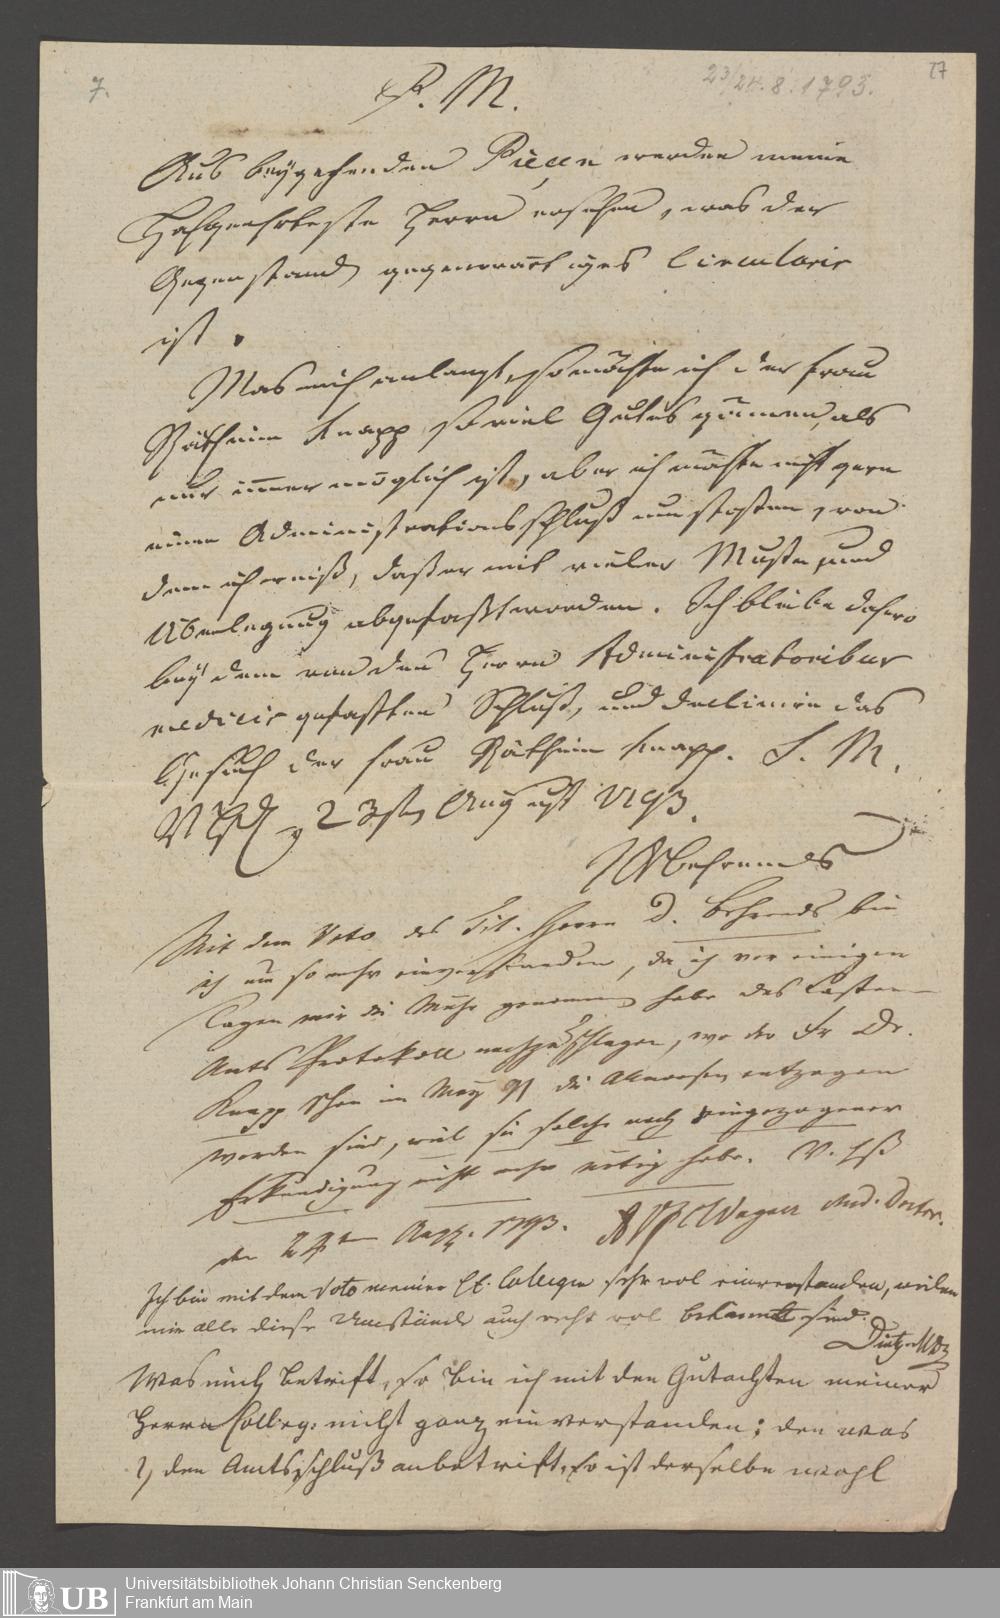 7.
23/24. 8. 1793.
17
P. M.
Aus beÿgehenden Piecen werden meine
Hochgeehrteste Herrn ersehen, was der
Gegenstand gegenwärtiges Circularis
ist.
Was mich anlangt, so möchte ich der Frau
Räthinn Knapp so viel Gutes gönnen, als
nur immer möglich ist, aber ich möchte nicht gern
einen Administrationsschluß umstosen, von
dem ich weiß, daß er mit vieler Muße und
Überlegung abgefaßt worden. Ich bleibe dahero
beÿ dem von den Herrn Administratoribus
medicis gefaßten Schluß, und declinire das
Gesuch der Frau Räthinn Knapp. S. M.
23ten August 1793.
Behrends
Mit dem Voto des Tit. Herrn D. Behrends bin
ich um so mehr einverstanden, da ich vor einigen
Tagen mir die Mühe genommen habe das Casten
Amts Protokoll nachzuschlagen, wo der Fr Dr.
Knapp schon im Maÿ 91 die Allmosen entzogen
worden sind, weil sie solche nach eingezogener
Erkundigung nicht mehr nötig habe.
den 24ten Aug. 1793. Wagen Med. Doctor.
Ich bin mit dem Voto meiner H. Collegen sehr wol einverstanden, weilen
mir alle diese Umstände auch recht wol bekannt sind.
Dietz MD
Was mich betrift, so bin ich mit den Gutachten meiner
Herrn Colleg: nicht ganz einverstanden; den was
1) den Amtsschluß anbetrift, so ist derselbe wohl
UB Universitätsbibliothek Johann Christian Senckenberg
Frankfurt am Main